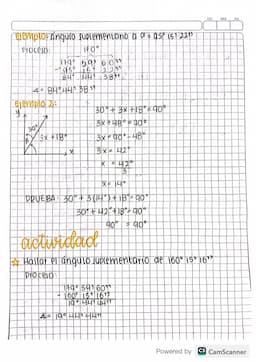 Ejemplo: ángulo suplementario a θ = 95° 15' 22"
Proceso: 180°
179° 59' 60"
- 95° 15' 22"
84° 44' 38"
∡ = 84° 44' 38"
Ejemplo 2:
y
30° + 3x + 18° = 90°
3x + 48° = 90°
30°
3x + 18°
3x = 90° - 48°
3x = 42°
x
x = 42°
3
x = 14°
PRUEBA: 30° + 3(14°) + 18° = 90°
30° + 42° + 18° = 90°
90° = 90°
actividad
Hallar el ángulo suplementario de 160° 15' 16"
Proceso:
179° 59' 60"
- 160° 15' 16"
19° 44' 44"
∡ = 19° 44' 44"
Powered by CS CamScanner